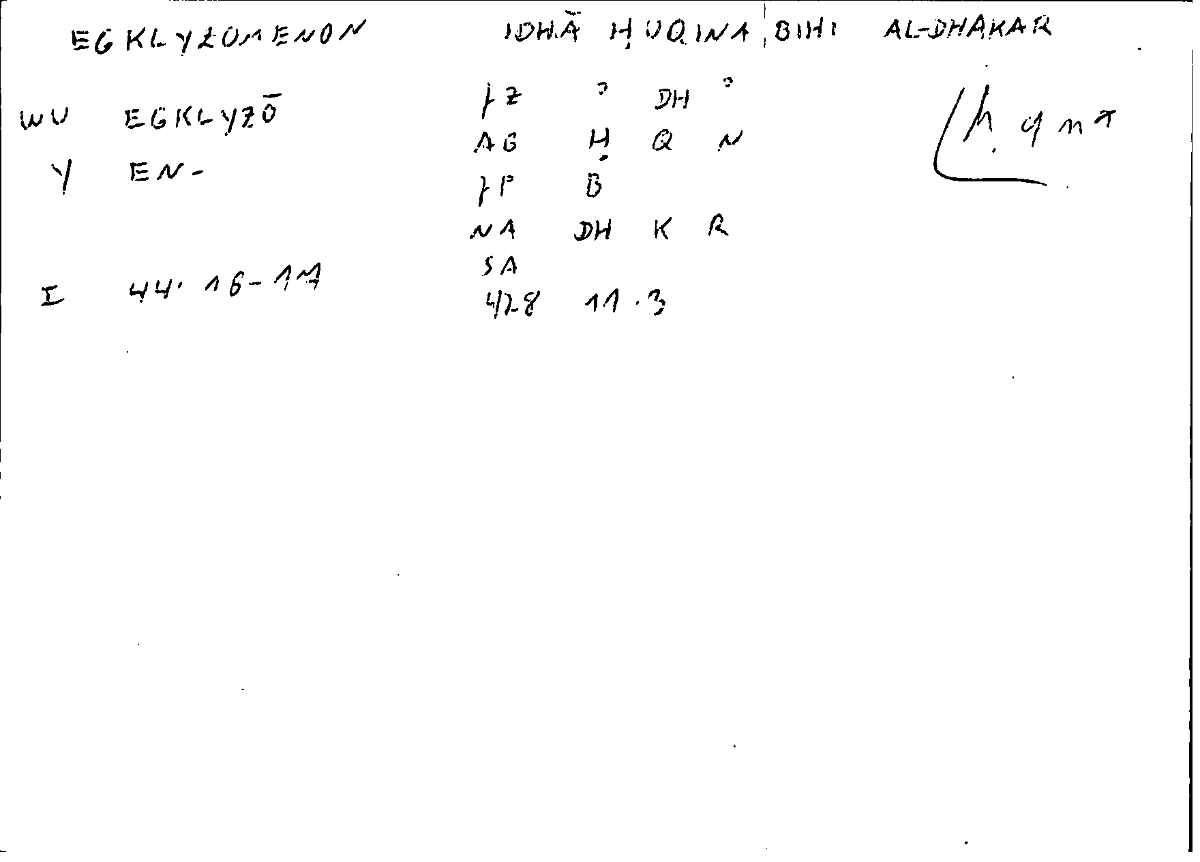 EGKLYZOMENON IDHĀ ḤUQINA BIHI AL-DHAKAR
WU EGKLYZŌ ȷZ ʾ DH ʾ
AG Ḥ Q N ḥqn
Y EN- ȷP B
NA DH K R
SA
I 44.16-17 428 11.3